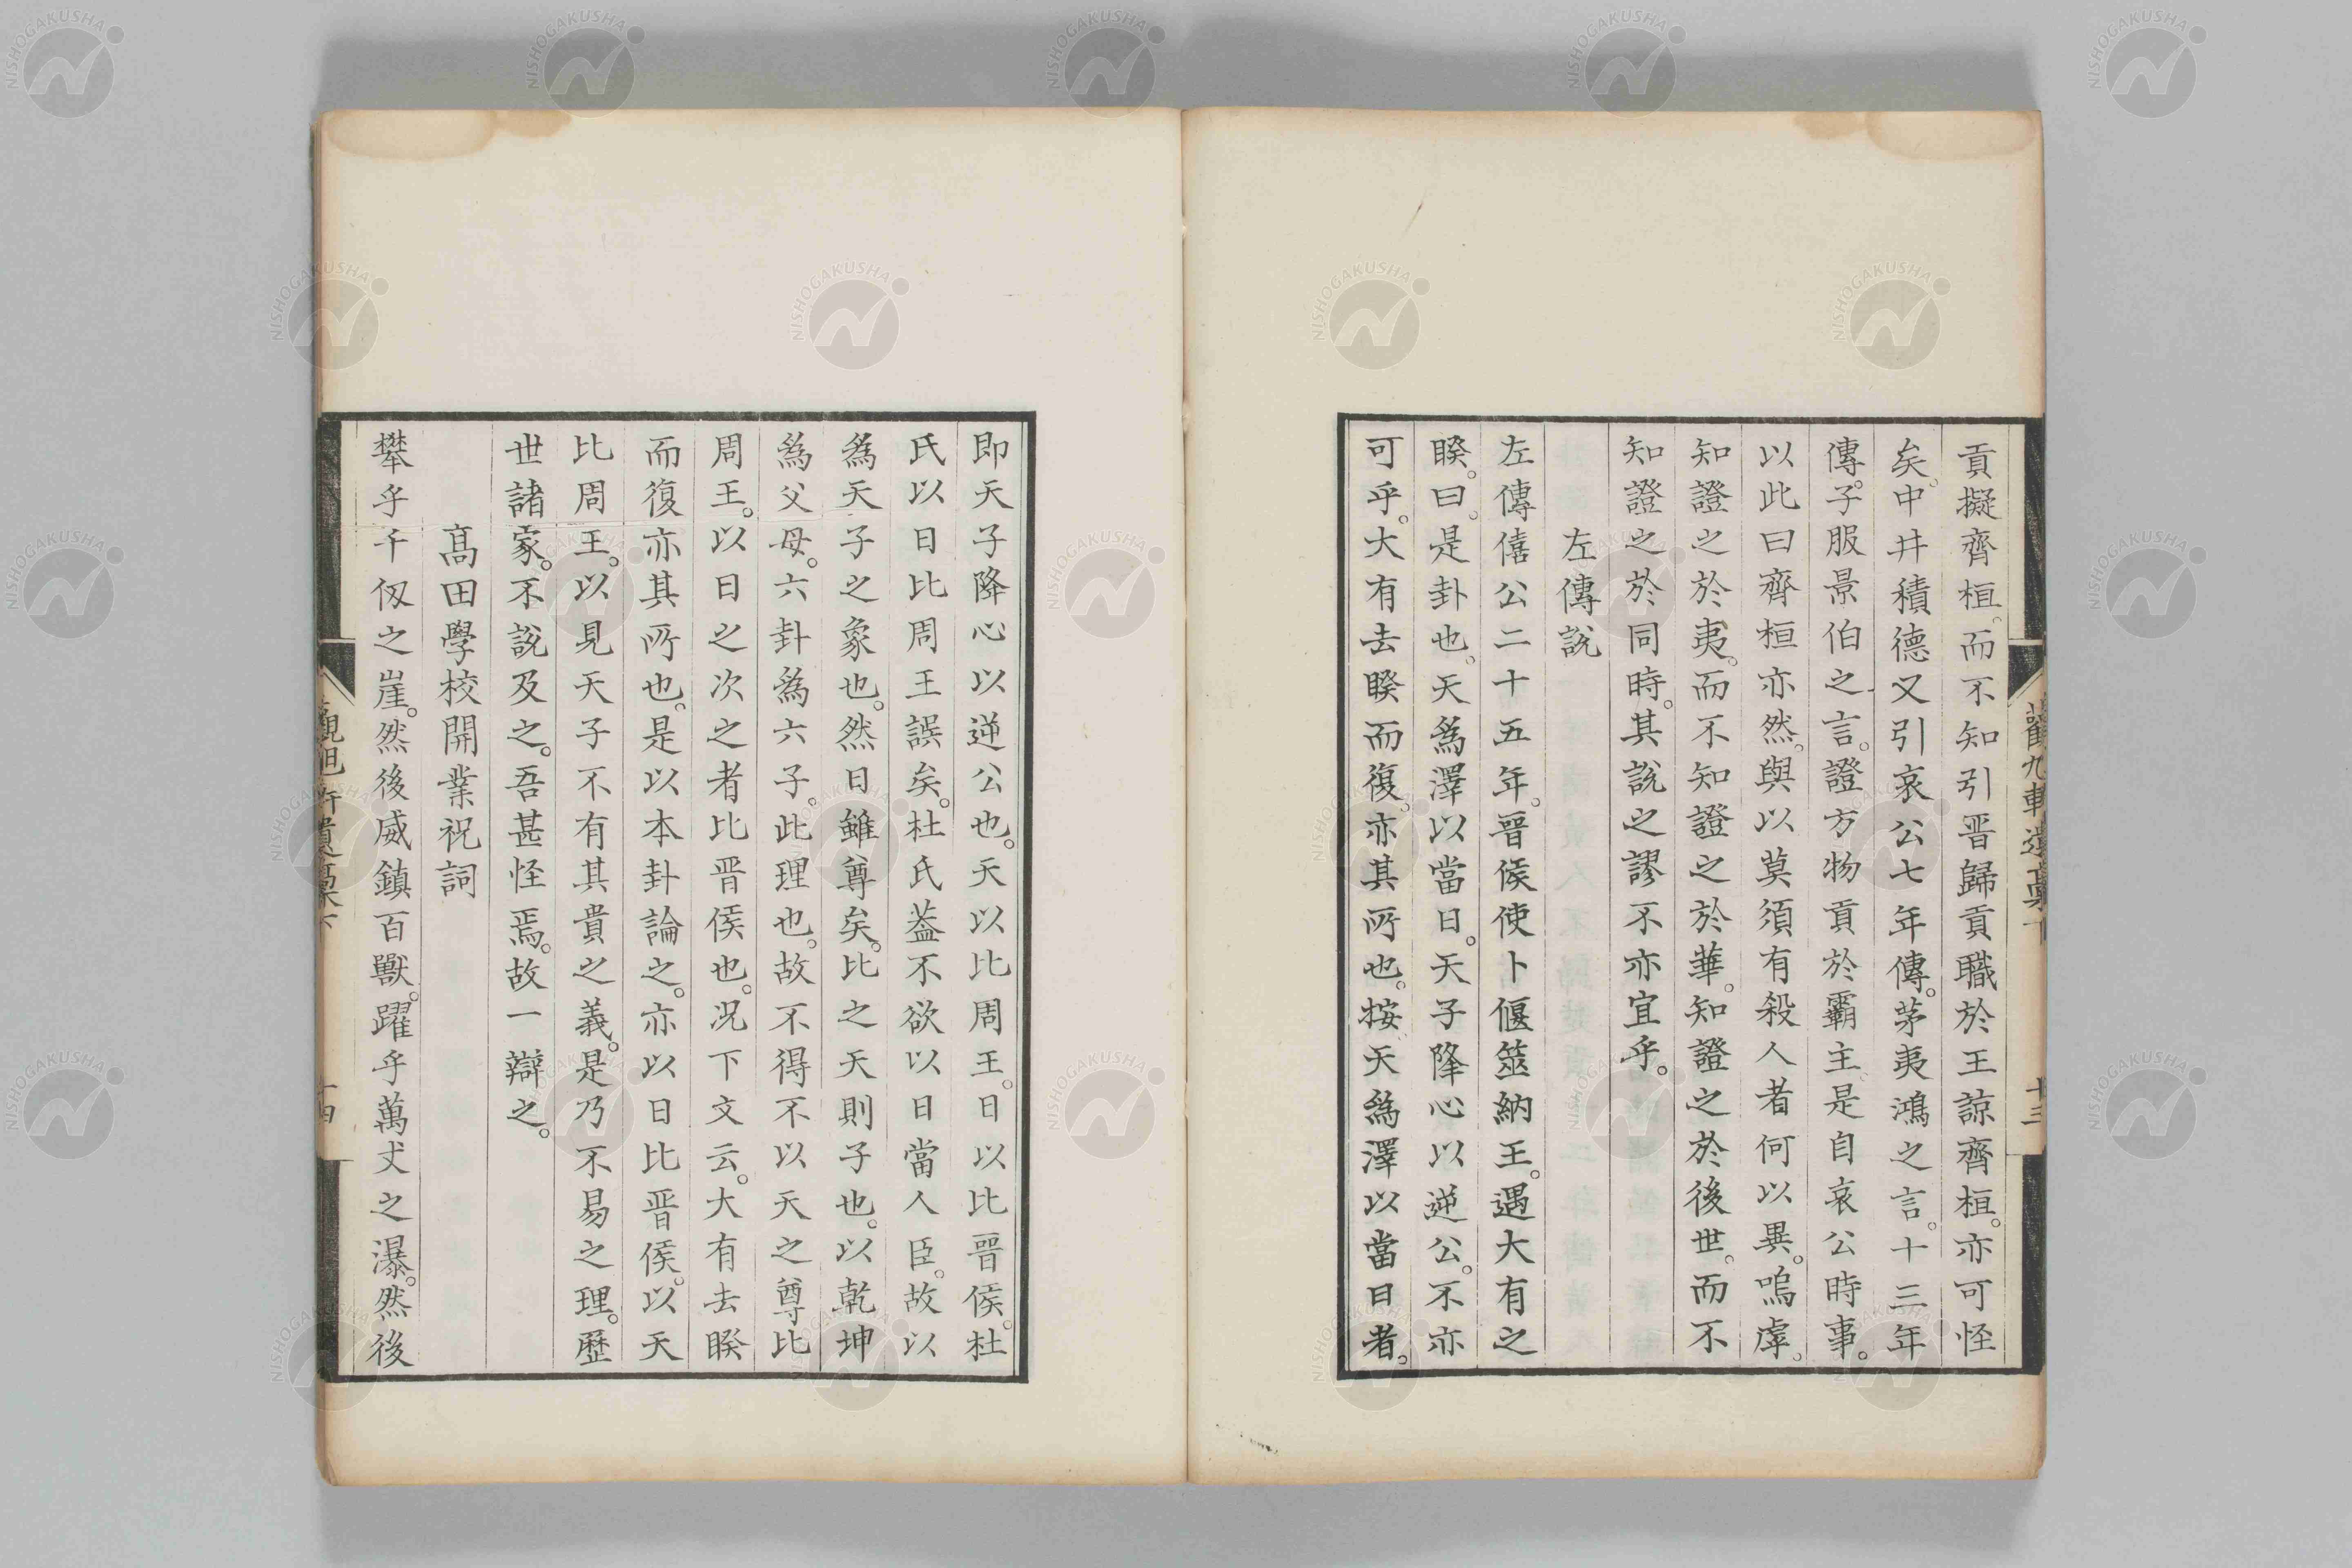 貢擬齊桓。而不知引晋歸貢職於王諒齊桓。亦可怪
矣。中井積德又引哀公七年傳。茅夷鴻之言。十三年
傳。子服景伯之言。證方物貢於霸主是自哀公時事。
以此曰齊桓亦然。與以莫須有殺人者何以異。嗚虖。
知證之於夷。而不知證之於華。知證之於後世。而不
知證之於同時。其說之謬不亦宜乎。
左傳說
左傳僖公二十五年。晉侯使卜偃筮納王。遇大有之
睽。曰。是卦也。天爲澤以當日。天子降心以逆公。不亦
可乎。大有去睽而復。亦其所也。按天爲澤以當日者。
即天子降心以逆公也。天以比周王。日以比晉侯。杜
氏以日比周王誤矣。杜氏葢不欲以日當人臣。故以
爲天子之象也。然日雖尊矣。比之天則子也。以乾坤
爲父母。六卦爲六子。此理也。故不得不以天之尊比
周王。以日之次之者比晋侯也。况下文云。大有去睽
而復亦其所也。是以本卦論之。亦以日比晋侯。以天
比周王。以見天子不有其貴之義。是乃不易之理。歷
世諸家。不說及之。吾甚怪焉。故一辯之。
髙田學校開業祝詞
攀乎千仭之崖。然後威鎮百獸。躍乎萬丈之瀑。然後
十三
十四
NISHOGAKUSHA